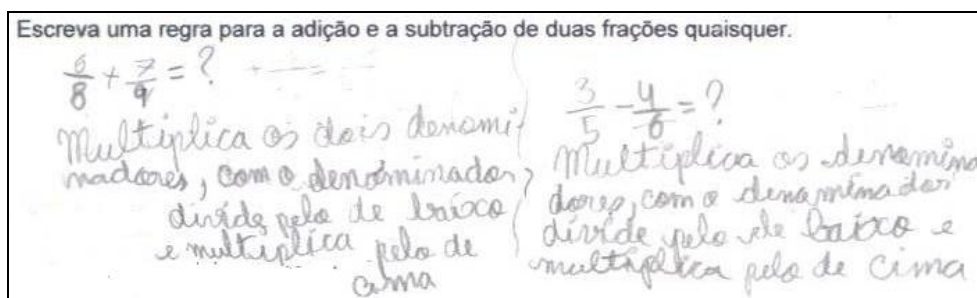 Escreva uma regra para a adição e a subtração de duas frações quaisquer.
6/8 + 7/9 = ?
Multiplica os dois denomi-
nadores, com o denominador
divide pelo de baixo
e multiplica pelo de
cima
3/5 - 4/6 = ?
Multiplica os denomina
dores, com o denaminador
divide pelo de baixo e
multiplica pelo de cima